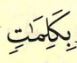 بِكَلِمَٰتِ